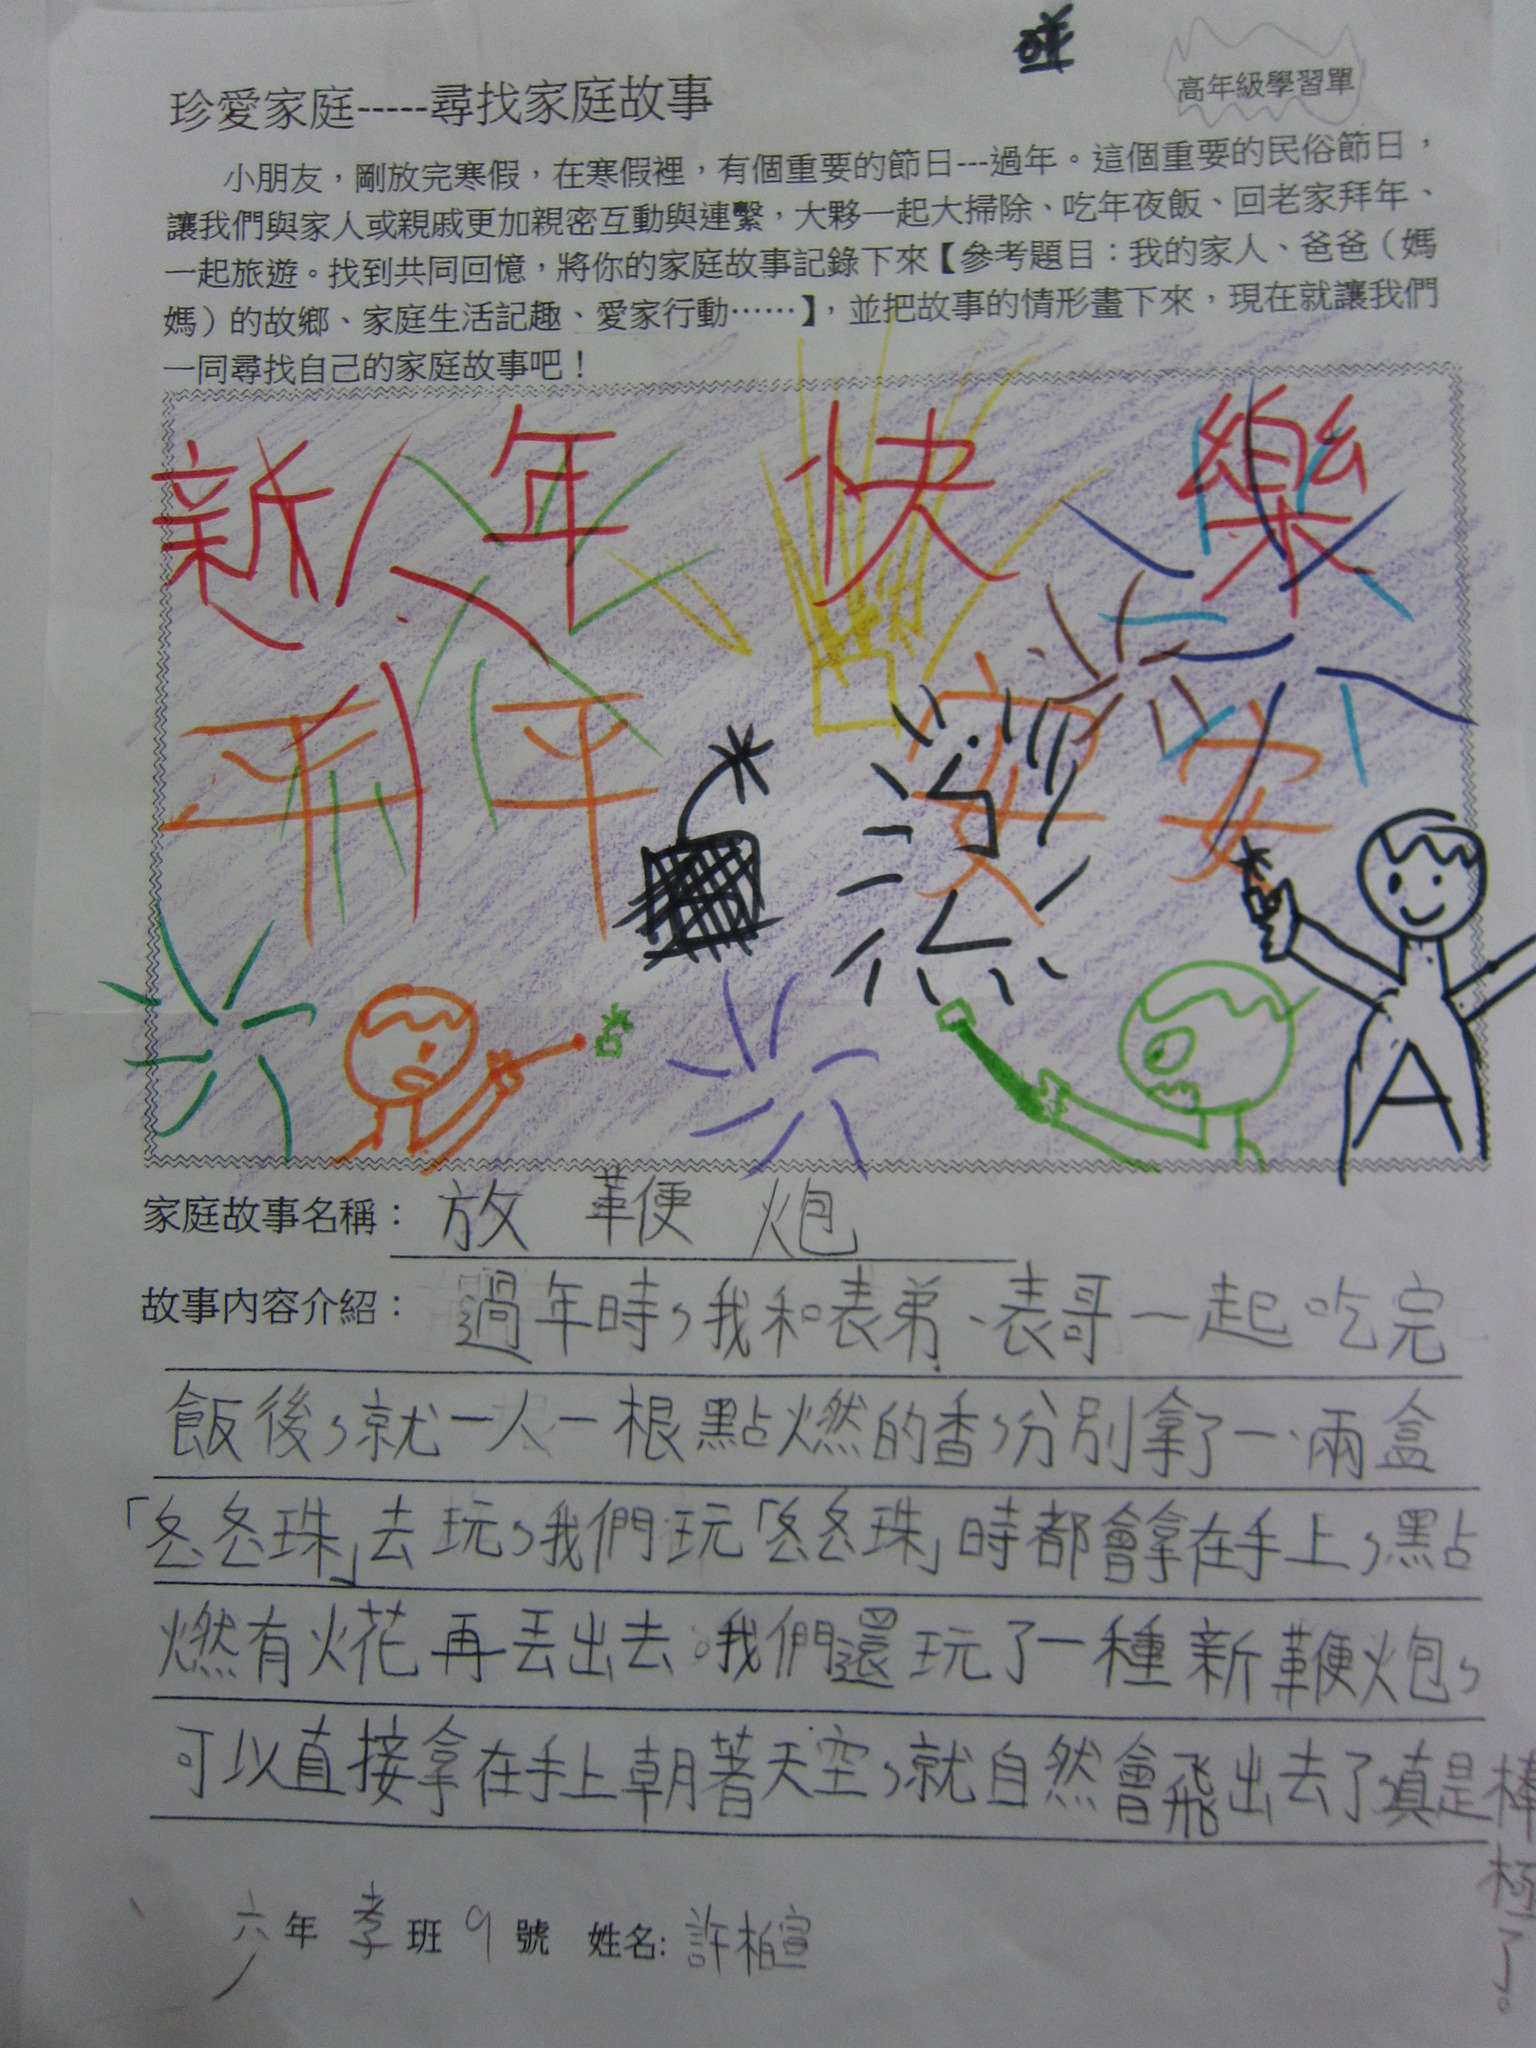 碰
高年級學習單
珍愛家庭-----尋找家庭故事
小朋友，剛放完寒假，在寒假裡，有個重要的節日---過年。這個重要的民俗節日，
讓我們與家人或親戚更加親密互動與連繫，大夥一起大掃除、吃年夜飯、回老家拜年、
一起旅遊。找到共同回憶，將你的家庭故事記錄下來【參考題目：我的家人、爸爸（媽
媽）的故鄉、家庭生活記趣、愛家行動……】，並把故事的情形畫下來，現在就讓我們
一同尋找自己的家庭故事吧！
新年快樂
平平安安
A
家庭故事名稱：放鞭炮
故事內容介紹：過年時，我和表弟、表哥一起吃完
飯後，就一人一根點燃的香，分別拿了一、兩盒
「冬冬珠」去玩，我們玩「冬冬珠」時都會拿在手上，點
燃有火花再丟出去。我們還玩了一種新鞭炮，
可以直接拿在手上朝著天空，就自然會飛出去了，真是棒
極了。
六年孝班9號 姓名:許柏宣